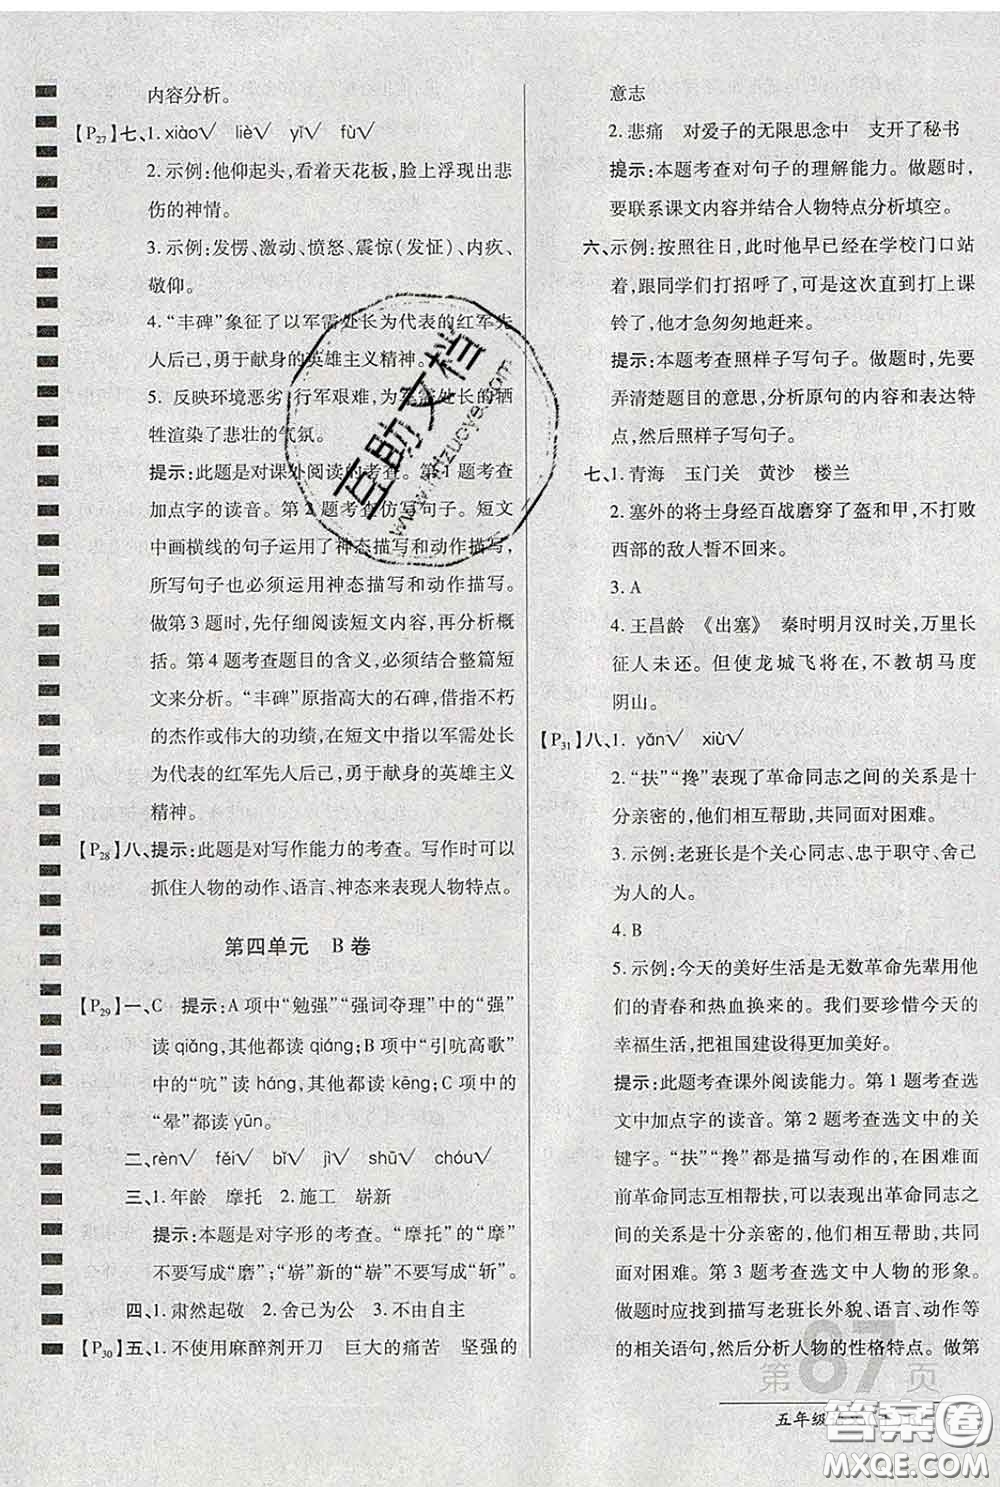 内容分析。
【P27】七、1. xiào√ liè√ yǐ√ fù√
2. 示例:他仰起头,看着天花板,脸上浮现出悲
伤的神情。
3. 示例:发愣、激动、愤怒、震惊(发怔)、内疚、
敬仰。
4. “丰碑”象征了以军需处长为代表的红军先
人后己,勇于献身的英雄主义精神。
5. 反映环境恶劣,行军艰难,为军需处长的牺
牲渲染了悲壮的气氛。
提示:此题是对课外阅读的考查。第1题考查
加点字的读音。第2题考查仿写句子。短文
中画横线的句子运用了神态描写和动作描写,
所写句子也必须运用神态描写和动作描写。
做第3题时,先仔细阅读短文内容,再分析概
括。第4题考查题目的含义,必须结合整篇短
文来分析。“丰碑”原指高大的石碑,借指不朽
的杰作或伟大的功绩,在短文中指以军需处长
为代表的红军先人后己,勇于献身的英雄主义
精神。
【P28】八、提示:此题是对写作能力的考查。写作时可以
抓住人物的动作、语言、神态来表现人物特点。
第四单元 B卷
【P29】一、C 提示:A项中“勉强”“强词夺理”中的“强”
读qiǎng,其他都读qiáng;B项中“引吭高歌”
中的“吭”读háng,其他都读kēng;C项中的
“晕”都读yūn。
二、rèn√ fěi√ bǐ√ jì√ shū√ chóu√
三、1. 年龄 摩托 2. 施工 崭新
提示:本题是对字形的考查。“摩托”的“摩”
不要写成“磨”;“崭”新的“崭”不要写成“斩”。
四、1. 肃然起敬 2. 舍己为公 3. 不由自主
【P30】五、1. 不使用麻醉剂开刀 巨大的痛苦 坚强的
意志
2. 悲痛 对爱子的无限思念中 支开了秘书
提示:本题考查对句子的理解能力。做题时,
要联系课文内容并结合人物特点分析填空。
六、示例:按照往日,此时他早已经在学校门口站
着,跟同学们打招呼了,可是这次直到打上课
铃了,他才急匆匆地赶来。
提示:本题考查照样子写句子。做题时,先要
弄清楚题目的意思,分析原句的内容和表达特
点,然后照样子写句子。
七、1. 青海 玉门关 黄沙 楼兰
2. 塞外的将士身经百战磨穿了盔和甲,不打败
西部的敌人誓不回来。
3. A
4. 王昌龄 《出塞》 秦时明月汉时关,万里长
征人未还。但使龙城飞将在,不教胡马度
阴山。
【P31】八、1. yǎn√ xiù√
2. “扶”“搀”表现了革命同志之间的关系是十
分亲密的,他们相互帮助,共同面对困难。
3. 示例:老班长是个关心同志、忠于职守、舍己
为人的人。
4. B
5. 示例:今天的美好生活是无数革命先辈用他
们的青春和热血换来的。我们要珍惜今天的
幸福生活,把祖国建设得更加美好。
提示:此题考查课外阅读能力。第1题考查选
文中加点字的读音。第2题考查选文中的关
键字。“扶”“搀”都是描写动作的。在困难面
前革命同志互相帮扶,可以表现出革命同志之
间的关系是十分亲密的,他们相互帮助,共同
面对困难。第3题考查选文中人物的形象。
做题时应找到描写老班长外貌、语言、动作等
的相关语句,然后分析人物的性格特点。做第
第87页
五年级
互助文档
www.hdzuoye.com
答案卷
MXQE.COM